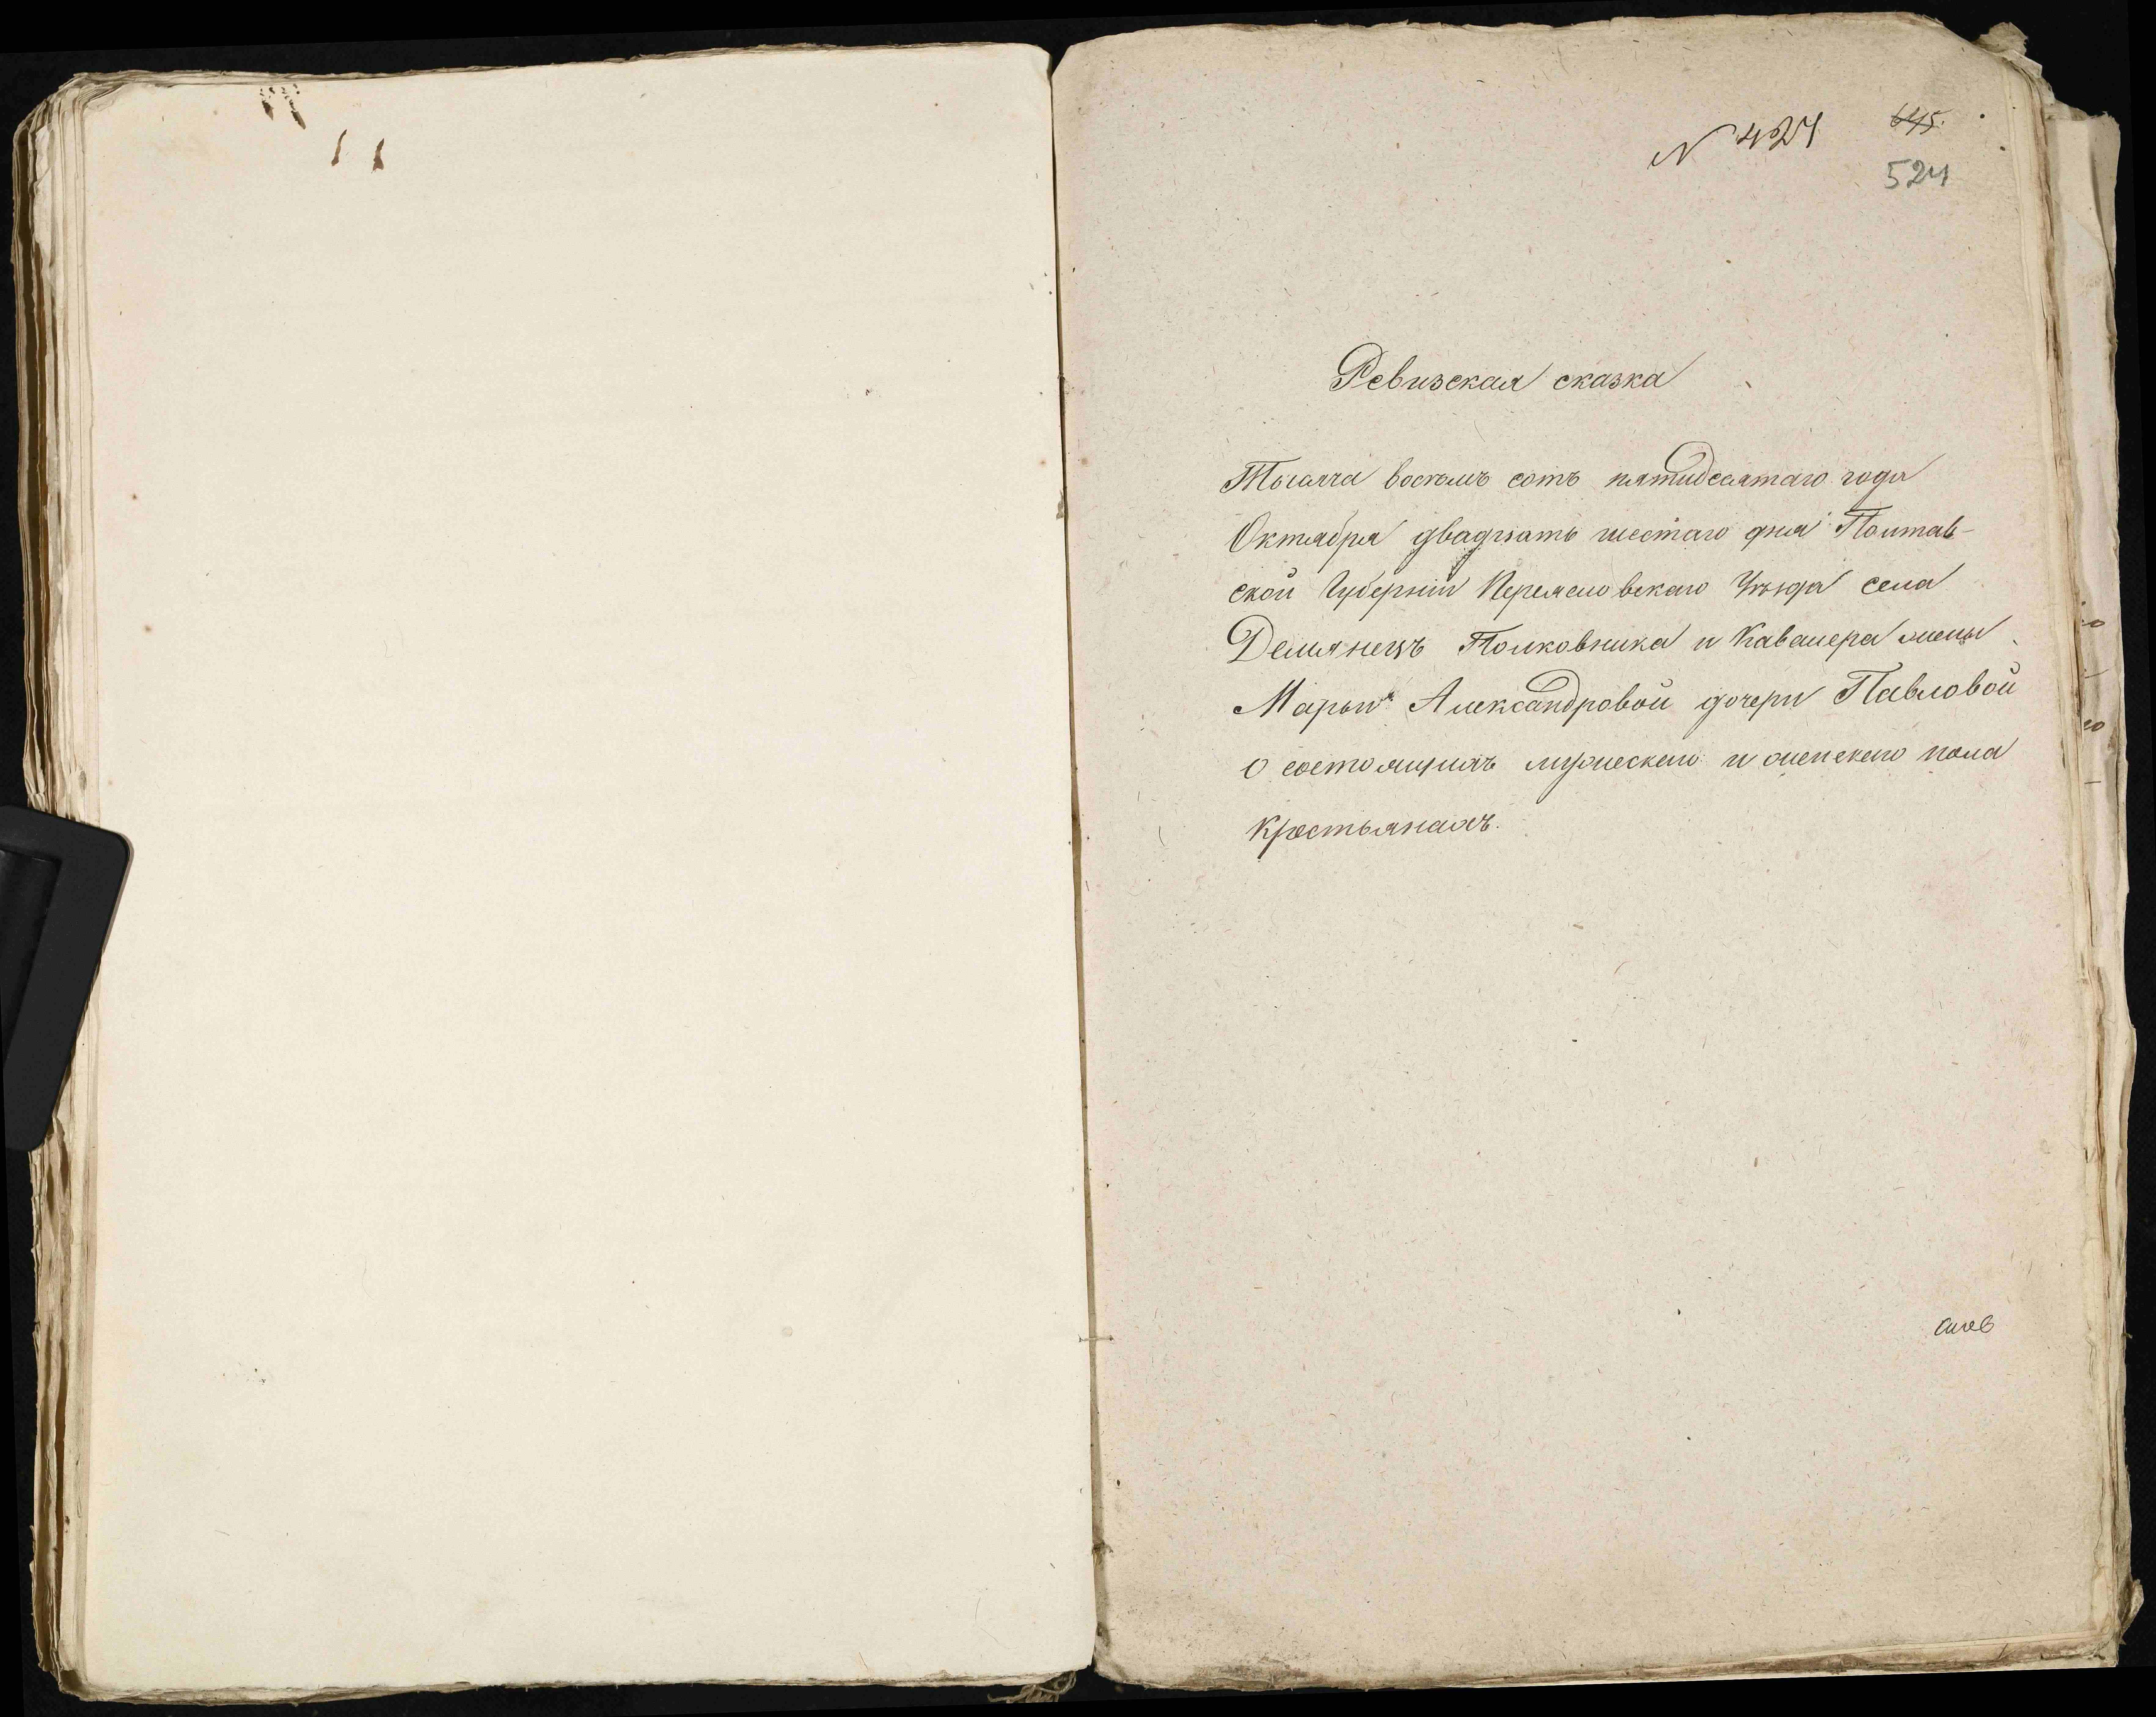 N 424
645.
524
Ревизская сказка
Тысяча восемь сотъ пятидесятаго года
Октября двадцать шестаго дня Полтав-
ской Губерніи Переясловскаго Уѣзда села
Демянецъ Полковника и Кавалера жены
Марьи Александровой дочери Павловой
о состоящихъ мужескаго и женскаго пола
крестьянахъ.